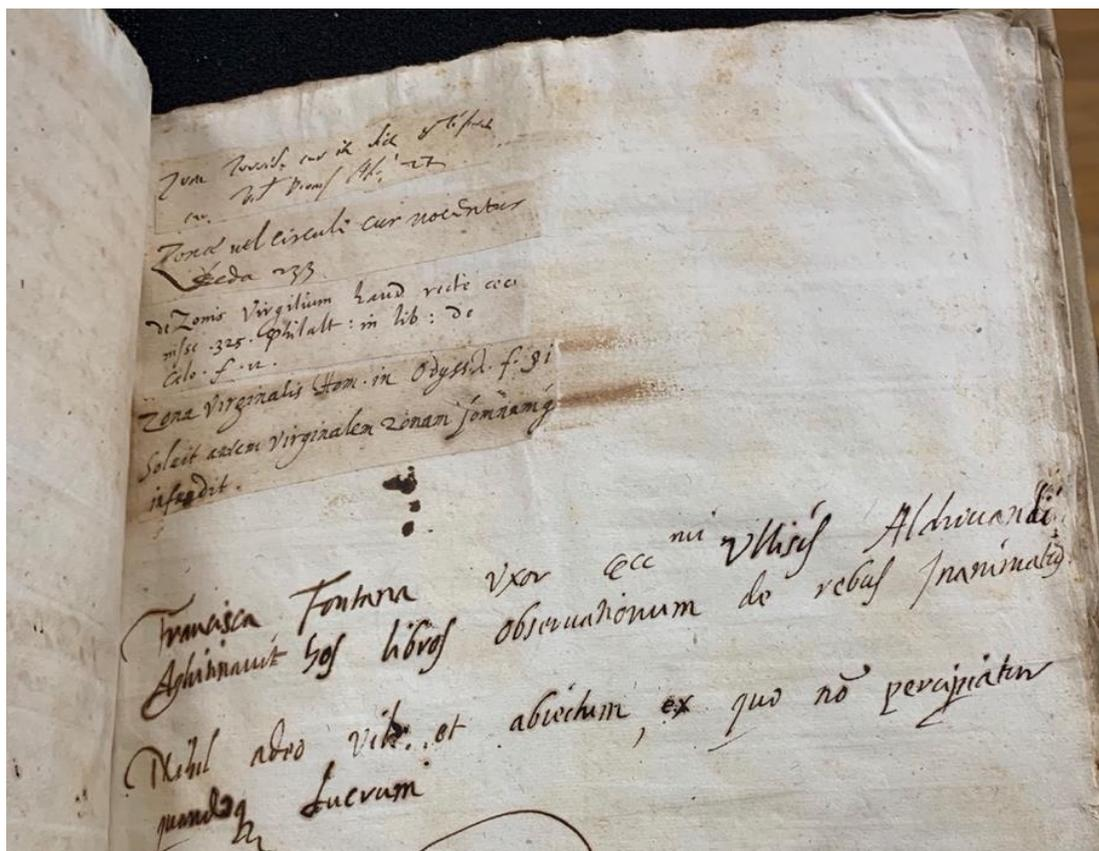 Zona
Zonæ vel circuli cur nocentur
Beda 233
de Zonis Virgilium haud recte ceci
nisse .325. Philalt : in lib : de
Cælo . f . 12 .
Zona Virginalis Hom . in Odyss. λ . f . 91
Soluit autem Virginalem Zonam somnumq̃
infundit .
Francisca Fontana vxor ecc mi Vllisis Aldrouandi
Aghitinauit hos libros obseruationum de rebus Inanimatis
Nihil adeo vile , et abiectum , ex quo nõ percipiatur
quandoq lucrum